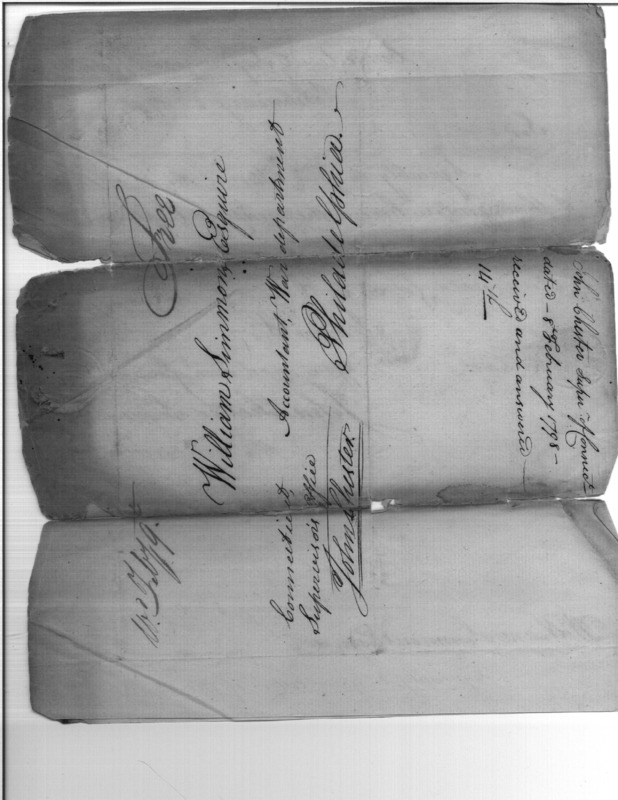 Free
William Simmons Esquire
Accountant, War department
Philadelphia.
Connecticut
Supervisors Office
John Chester
Feby 9.
John Chester Supr Connect
dated - 8 February 1798 -
received and answered
14th